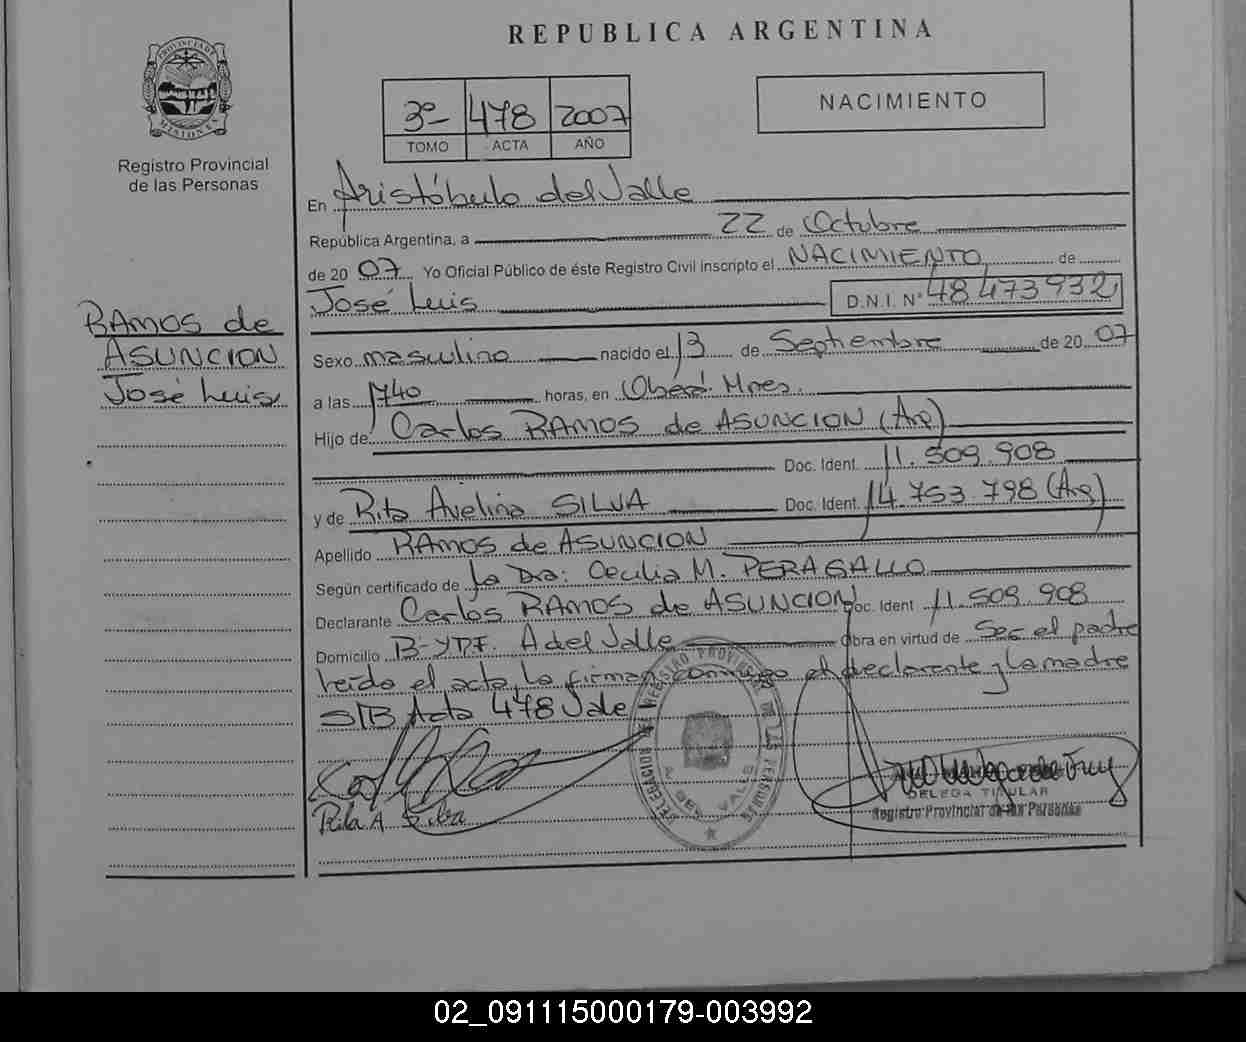 REPUBLICA ARGENTINA
PROVINCIA DE MISIONES
Registro Provincial
de las Personas
3º 478 2007
TOMO ACTA AÑO
NACIMIENTO
En Aristóbulo del Valle
República Argentina, a 22 de Octubre
de 20 07 Yo Oficial Público de éste Registro Civil inscripto el NACIMIENTO de
José Luis D.N.I. Nº 48473932
RAMOS de
ASUNCION
José Luis
Sexo masculino nacido el 13 de Septiembre de 20 07
a las 1740 horas, en Oberá Mnes.
Hijo de Carlos RAMOS de ASUNCION (Arg)
Doc. Ident. 11.509.908
y de Rita Avelina SILVA Doc. Ident. 14.753.798 (Arg)
Apellido RAMOS de ASUNCION
Según certificado de la Dra: Cecilia M. PERAGALLO
Declarante Carlos RAMOS de ASUNCION Doc. Ident 11.509.908
Domicilio B-YPF. A del Valle Obra en virtud de Ser el padre
leída el acta, la firman conmigo el declarante y la madre
S/B Acta 478 Vale
Rita A. Silva
DELEGA TITULAR
Registro Provincial de las Personas
DELEGACION DEL REGISTRO PROVINCIAL DE LAS PERSONAS
A. DEL VALLE
02_091115000179-003992